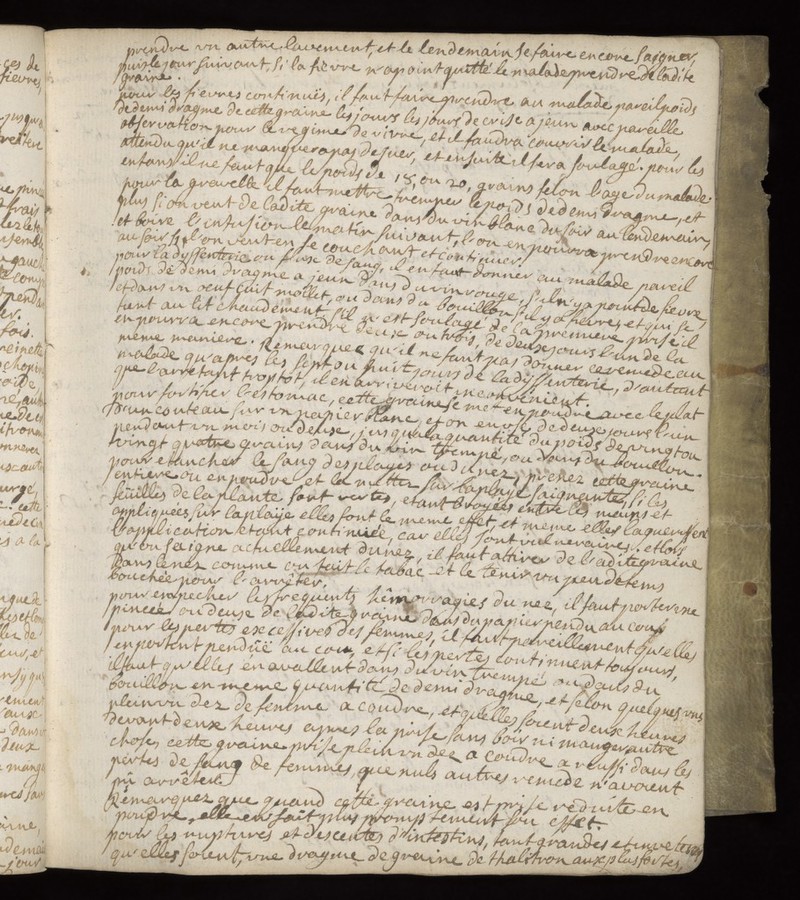 prendre un autre lavement, et le lendemain se faire encore saigner,
puis le jour suivant, si la fievre n'a point quitté le malade prendre de ladite
graine.
pour les fievres continues, il faut faire prendre au malade pareil poids
de demi dragme de cette graine les jours les jours de crise a jeun avec pareille
observation pour le regime de vivre, et il faudra couvrir le malade,
attendu qu'il ne manquera pas de suer, et ensuite il sera soulagé. pour les
enfans il ne faut que le poids de 18, ou 20, grains selon l'age du malade.
pour la gravelle il faut mettre tremper le poids de demi dragme, et
plus si on veut de ladite graine dans du vin blanc du soir au lendemain,
et boire l'infusion le matin suivant, l'on en pourra prendre encore
au soir si l'on veut en se couchant et continuer.
pour la dyssenterie ou flux de sang, il en faut donner au malade pareil
poids de demi dragme a jeun dans du vin rouge, s'il n'y a point de fievre,
et dans un oeuf cuit molet, ou dans du bouillon s'il y a fievre, et qui se
tient au lit chaudement s'il ne est soulagé de la premiere prise il
en pourra encore prendre deux ou trois, de deux jours l'un de la
meme maniere. Remarquez qu'il ne faut pas donner ce remede au
malade qu'apres les sept ou huit jours de la dyssenterie, d'autant
que l'arretant trop tot, il en arriveroit inconvenient.
pour fortifier l'estomac, cette graine se met en poudre avec le plat
d'un couteau sur un papier blanc, et on en use de deux jours l'un
pendant un mois ou deux, jusqu'a la quantité du poids de vingt ou
vingt quatre grains dans du vin trempé, ou dans du bouillon.
pour etancher le sang des playes ou du nez, prenez cette graine
entiere ou en poudre et la mettez sur la playe saignante, si les
feüilles de la plante sont vertes, etant broyées entre les mains et
appliquées sur la playe elles font le meme effet, et meme elles la guerissent
l'application etant continuée, car elles sont vulneraires. et lors
qu'on saigne actuellement du nez, il faut attirer de ladite graine
dans le nez comme on fait le tabac et le tenir un peu de tems
bouchée pour l'arrêter.
pour empecher les frequents hemorragies du nez, il faut porter une
pincée ou deux de ladite graine dans du papier pendu au cou,
pour les pertes excessives des femmes, il faut pareillement qu'elles
en portent pendüe au cou, et si les pertes continuent toujours,
il faut qu'elles en avallent dans du vin trempé ou dans du
bouillon en meme quantité de demi dragme, et selon quelques uns
plein un dez de femme a coudre, et qu'elles soient deux heures
devant deux heures apres la prise sans boir ni manger autre
chose; cette graine prise plein un dez a coudre a reussi dans les
pertes de sang de femmes, que nuls autres remede n'avoient
pû arrêter.
Remarquez que quand cette graine est prise réduite en
poudre, elle en fait plus promptement son effet.
pour les ruptures et descentes d'intestins, tant grandes et inveterées
qu'elles soient, une dragme de graine de thalitron aux plus fortes,